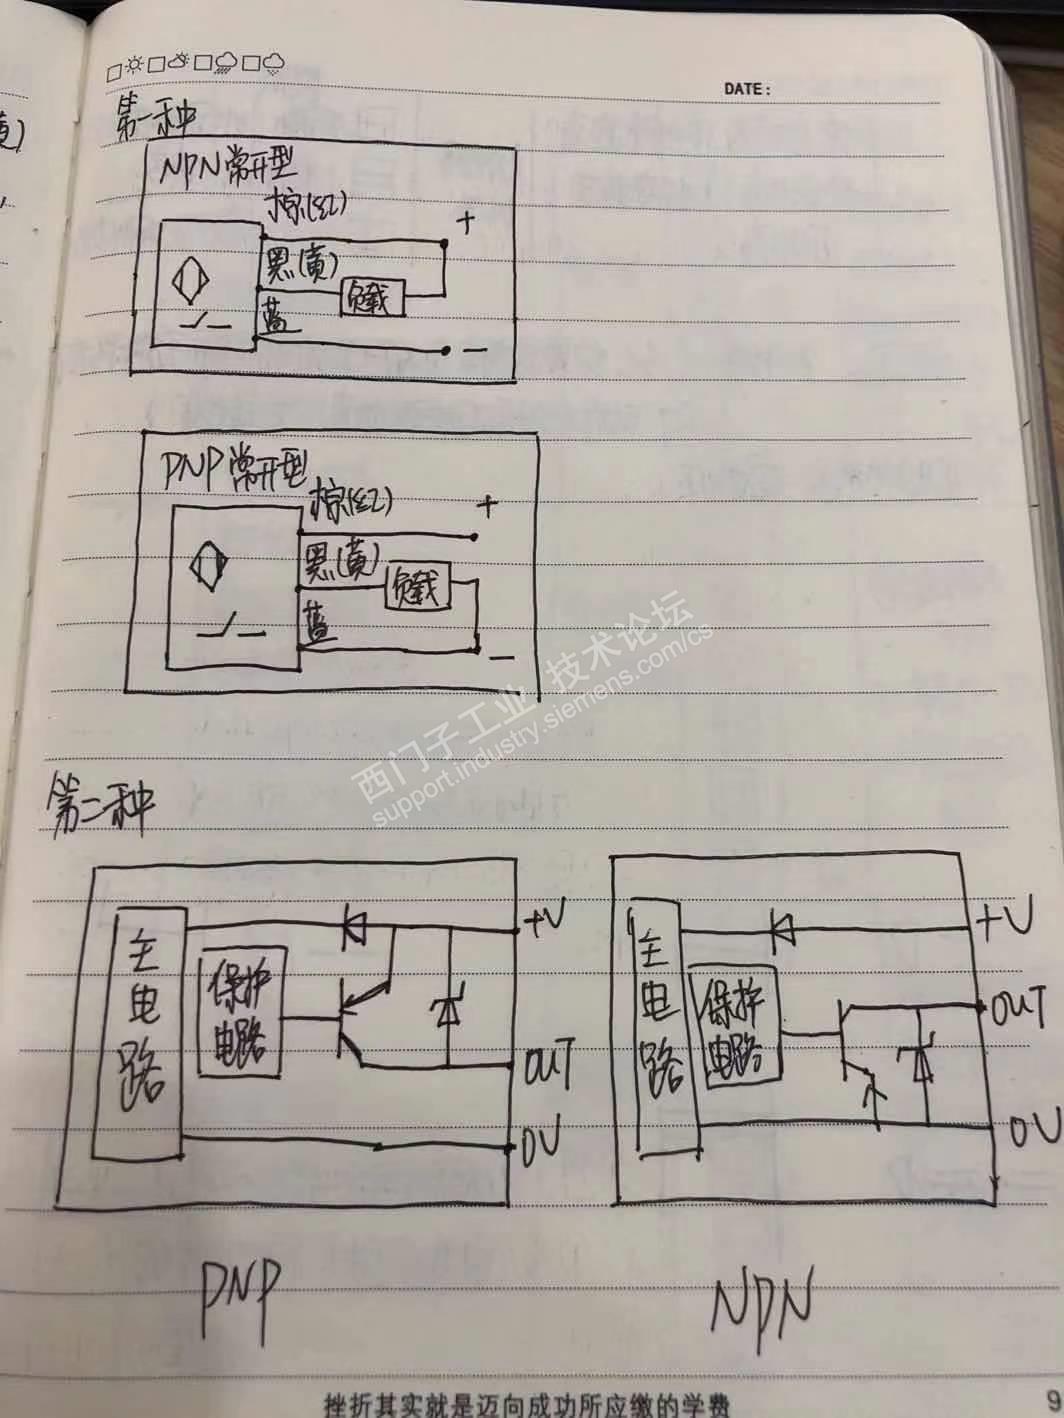 DATE:
黄)
第一种
NPN常开型
棕(红)
+
黑(黄)
负载
蓝
−
PNP常开型
棕(红)
+
黑(黄)
负载
蓝
−
西门子工业 技术论坛
support.industry.siemens.com/cs
第二种
主电路
保护电路
+V
OUT
0V
主电路
保护电路
+V
OUT
0V
PNP
NPN
挫折其实就是迈向成功所应缴的学费
9